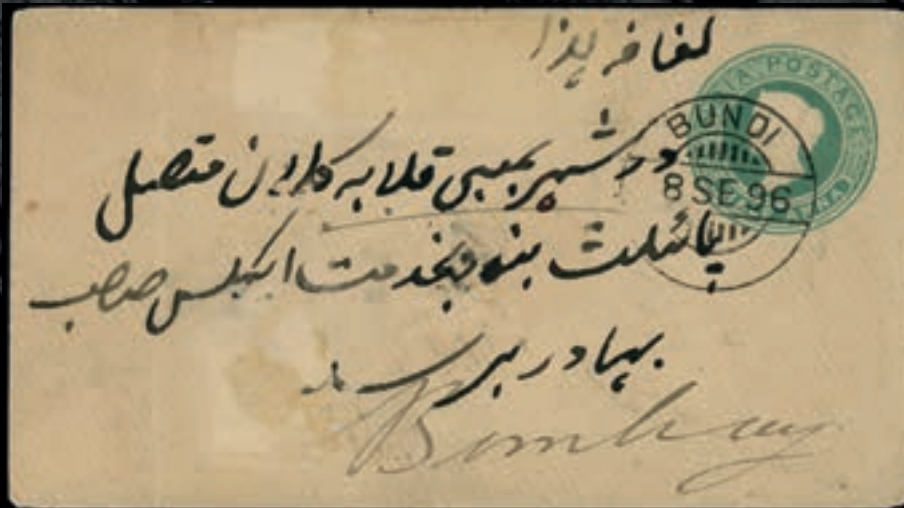 لفافہ ہذا
INDIA POSTAGE
BUNDI
8 SE 96
در شہر بمبئی قلابہ کلان متصل
پائلٹ بندر بخدمت صاحب
بہادر برسد
Bombay